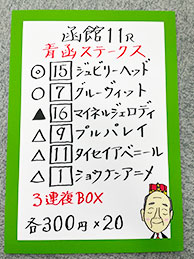 函館11R
青函ステークス
◎ 15 ジュビリーヘッド
○ 7 グルーヴィット
▲ 16 マイネルジェロディ
△ 9 プルパレイ
△ 11 タイセイアベニール
△ 1 ショウナンアニメ
3連複BOX
各300円×20